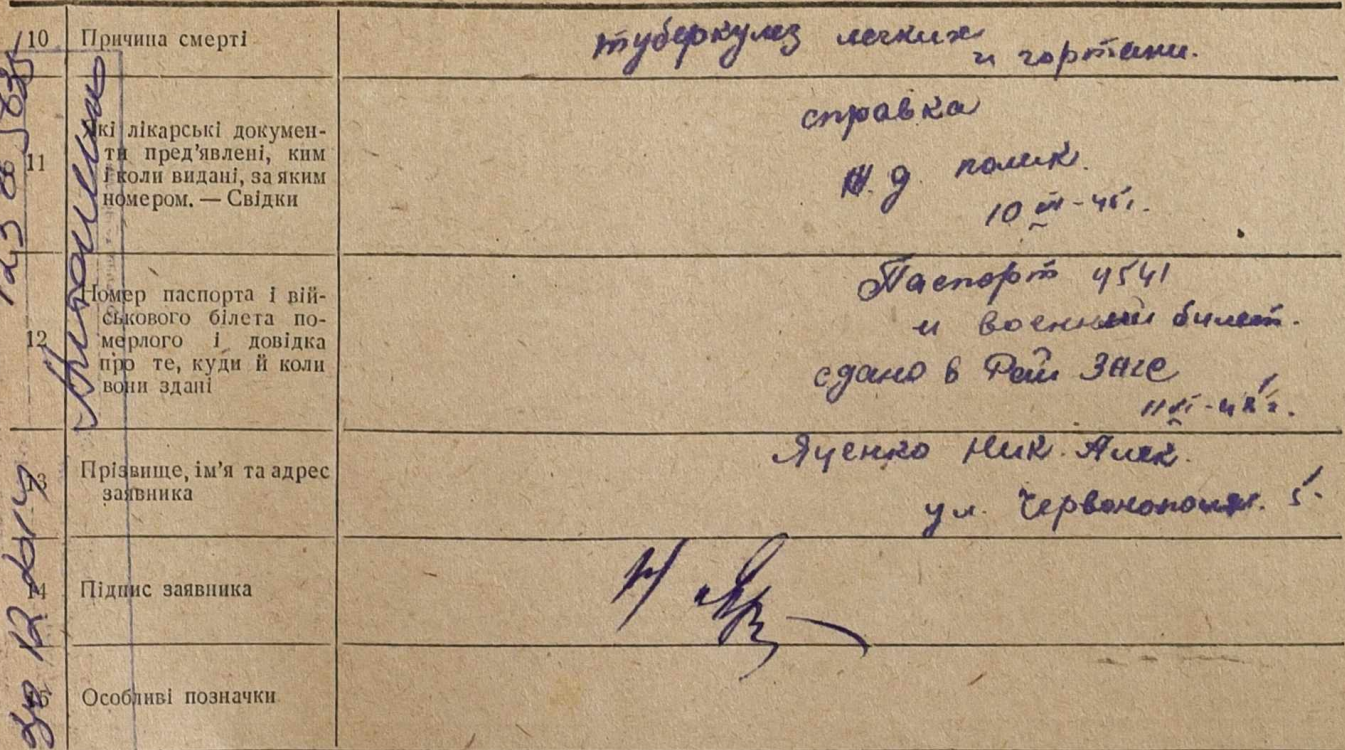 10 Причина смерті
туберкулез легких
и гортани.
11 Які лікарські докумен-
ти пред'явлені, ким
і коли видані, за яким
номером. — Свідки
справка
ж. д. полик.
10 III-45г.
12 Номер паспорта і вій-
ськового білета по-
мерлого і довідка
про те, куди й коли
вони здані
Паспорт 4541
и военный билет.
сдано в Рай ЗАГС
13 Прізвище, ім'я та адрес
заявника
Яценко Ник. Алек.
ул. 5.
14 Підпис заявника
15 Особливі позначки